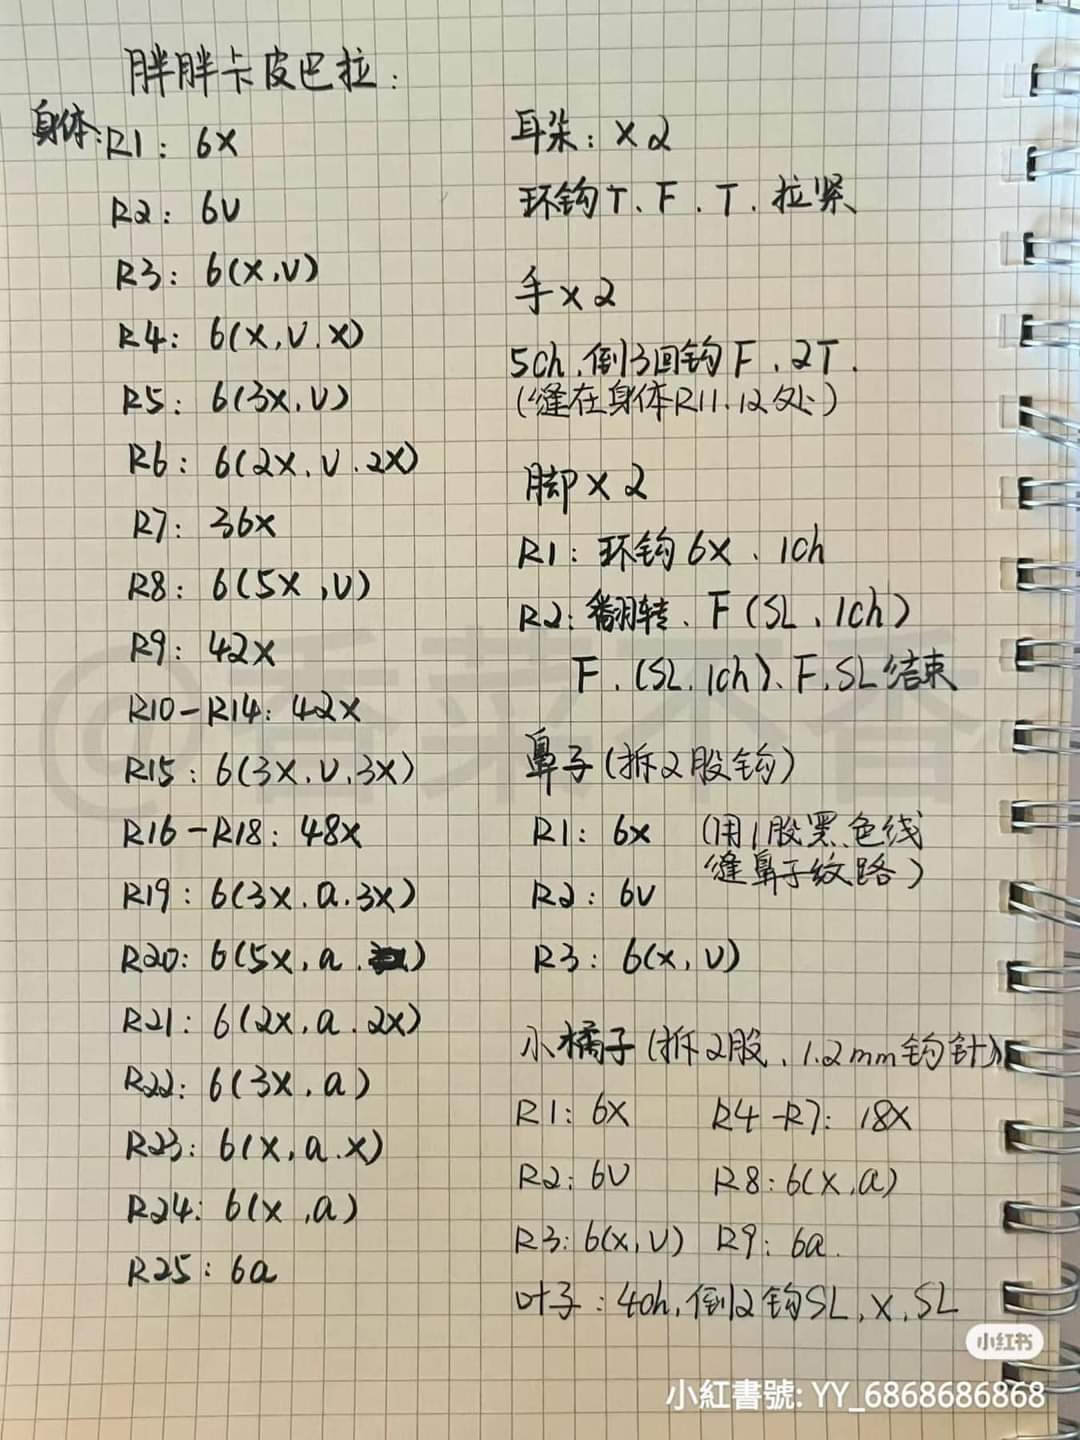 胖胖卡皮巴拉：
身体：R1：6X
R2：6V
R3：6(X,V)
R4：6(X,V.X)
R5：6(3X,V)
R6：6(2X.V.2X)
R7：36X
R8：6(5X,V)
R9：42X
R10-R14：42X
R15：6(3X.V.3X)
R16-R18：48X
R19：6(3X.A.3X)
R20：6(5X,A.)
R21：6(2X,A.2X)
R22：6(3X,A)
R23：6(X,A.X)
R24：6(X,A)
R25：6A
耳朵：X2
环钩T、F.T.拉紧
手X2
5ch.倒3回钩F.2T.
(缝在身体R11.12处)
脚X2
R1：环钩6X、1ch
R2：翻转、F(SL、1ch)
F.(SL.1ch)、F.SL结束
鼻子(拆2股钩)
R1：6X (用1股黑色线
缝鼻子纹路)
R2：6V
R3：6(X,V)
小橘子(拆2股、1.2mm钩针)
R1：6X R4-R7：18X
R2：6V R8：6(X,A)
R3：6(X,V) R9：6A.
叶子：4ch,倒2钩SL,X,SL
@香菜不香
小红书
小紅書號: YY_6868686868